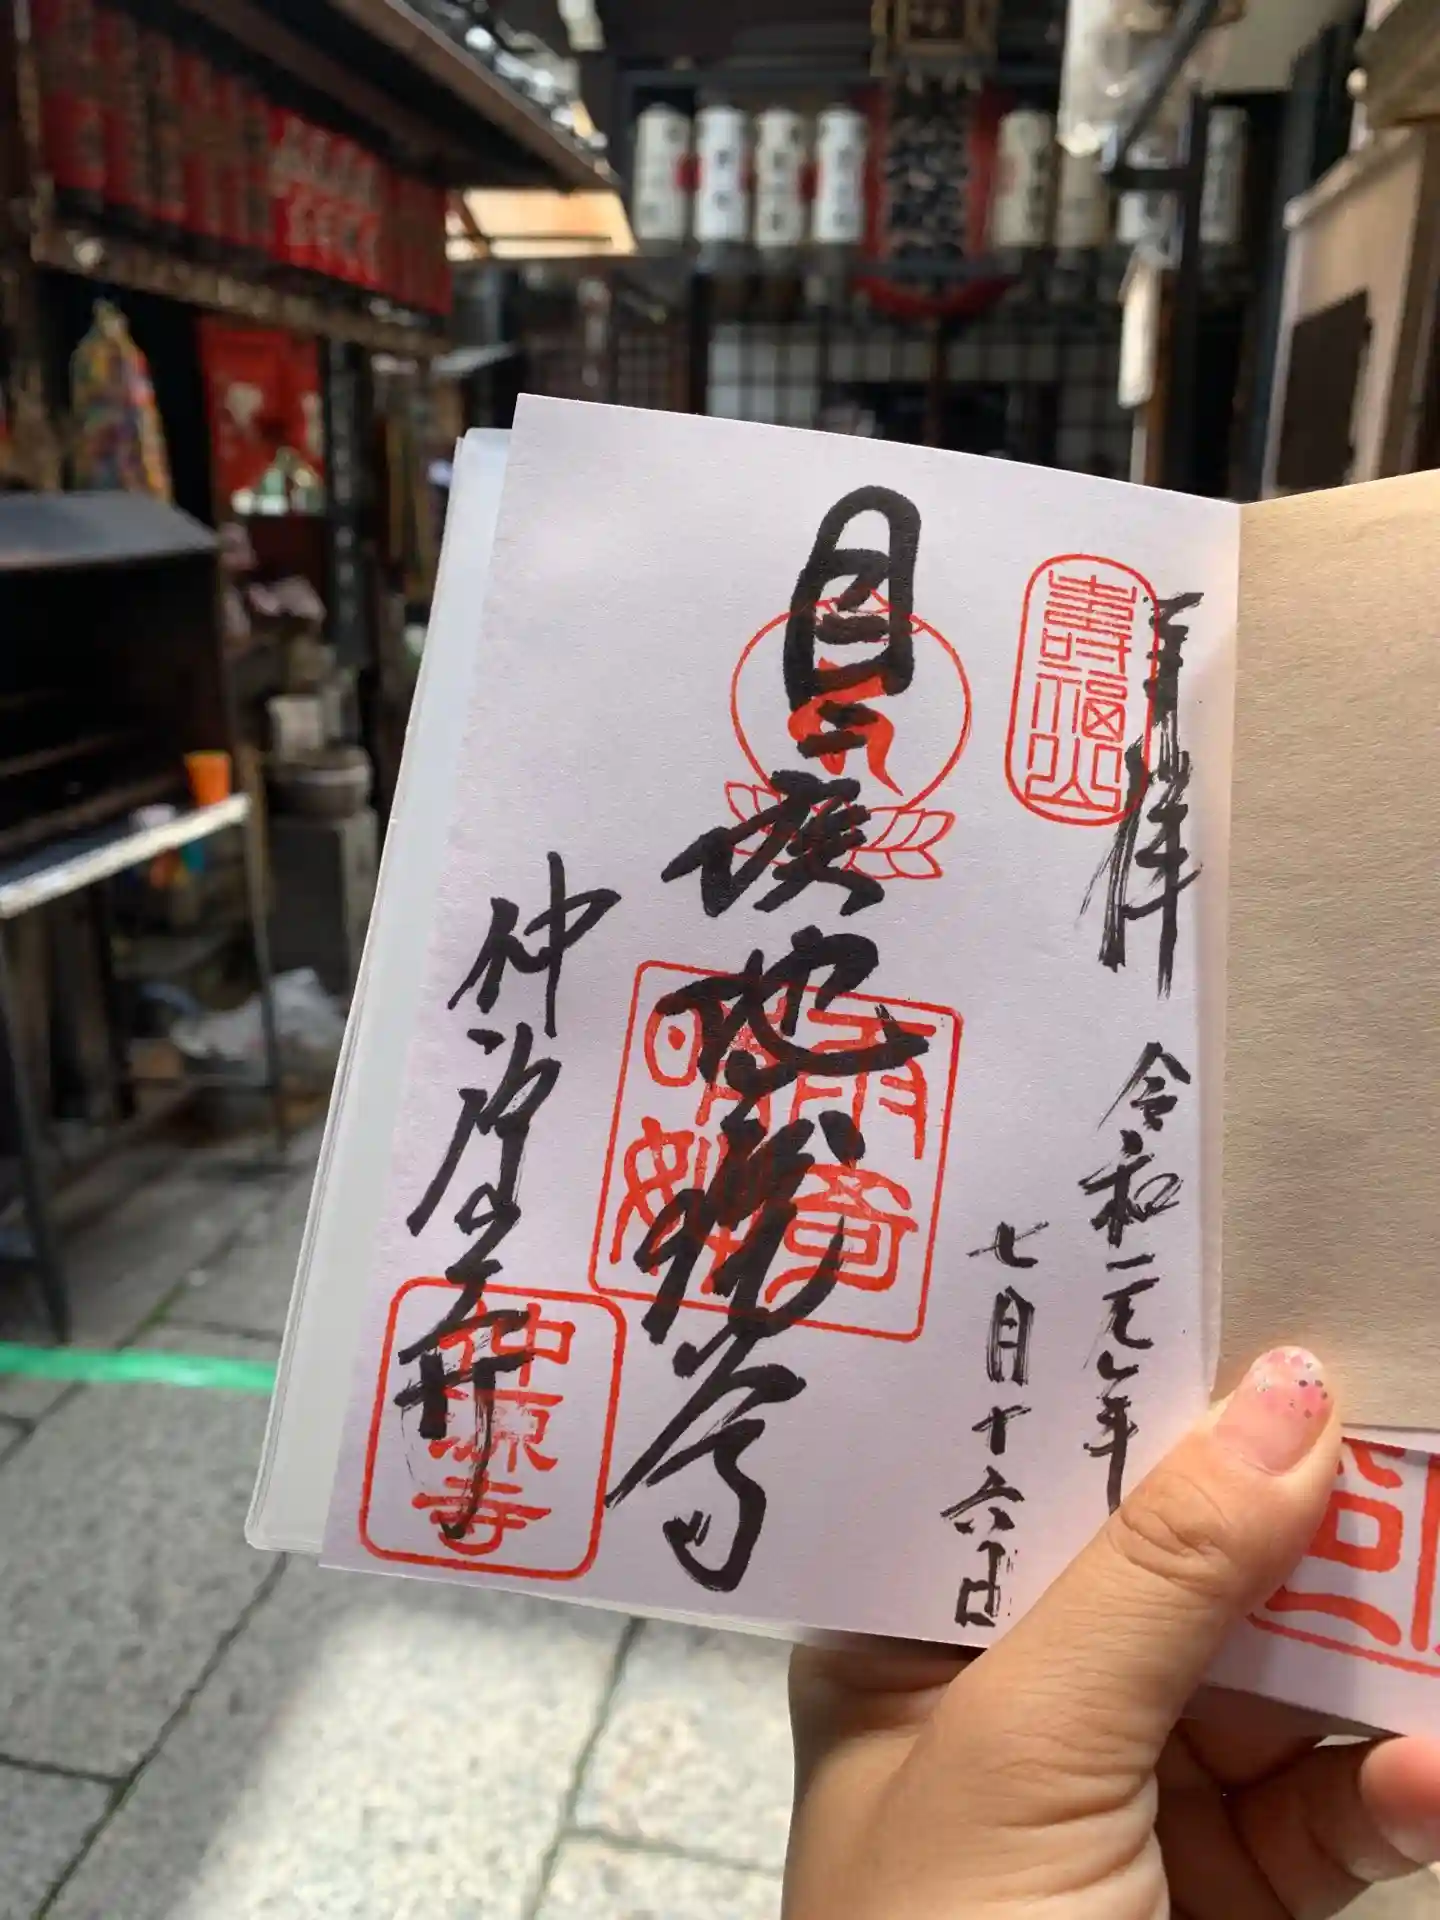 奉拝
壽福山
令和元年
七月十六日
目疾地蔵尊
雨奇
晴
仲源寺
仲源寺